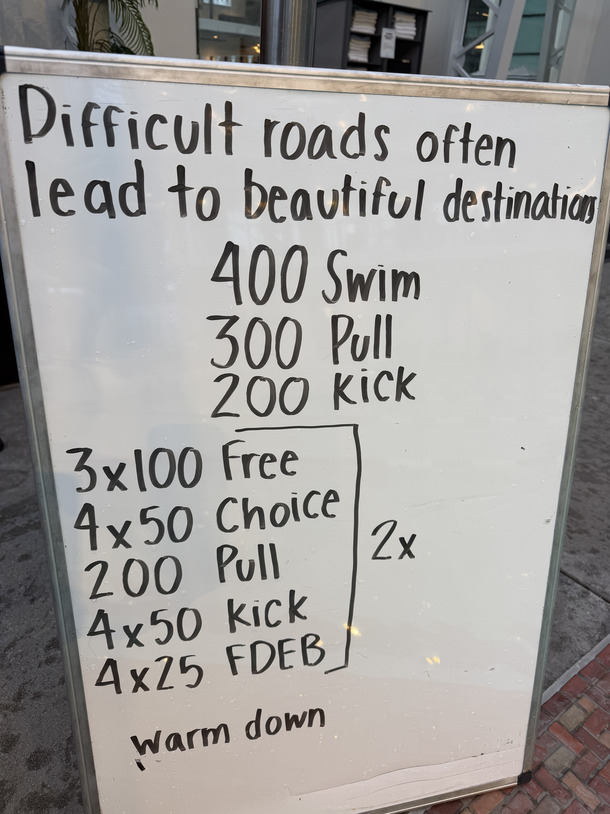 Difficult roads often
lead to beautiful destinations
400 Swim
300 Pull
200 Kick
3x100 Free
4x50 Choice
200 Pull
4x50 Kick
4x25 FDEB
2x
Warm down